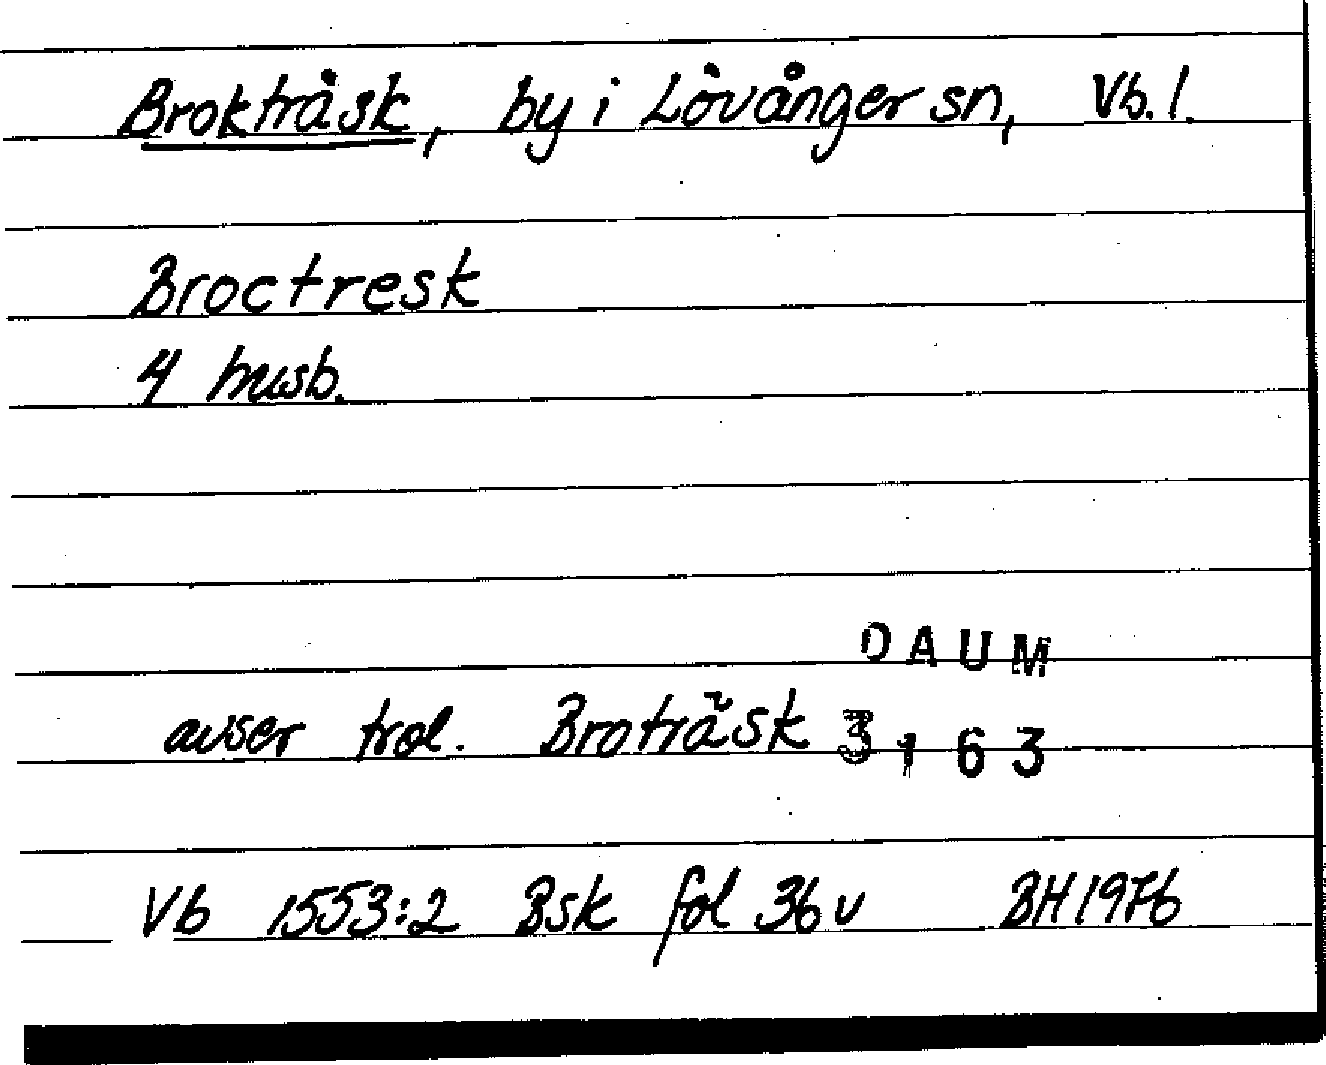 Brokträsk, by i Lövånger sn, Vb. l.
Broctresk
4 husb.
DAUM
avser trol. Broträsk 3163
Vb 1553:2 Bsk fol 36 v BH 1976